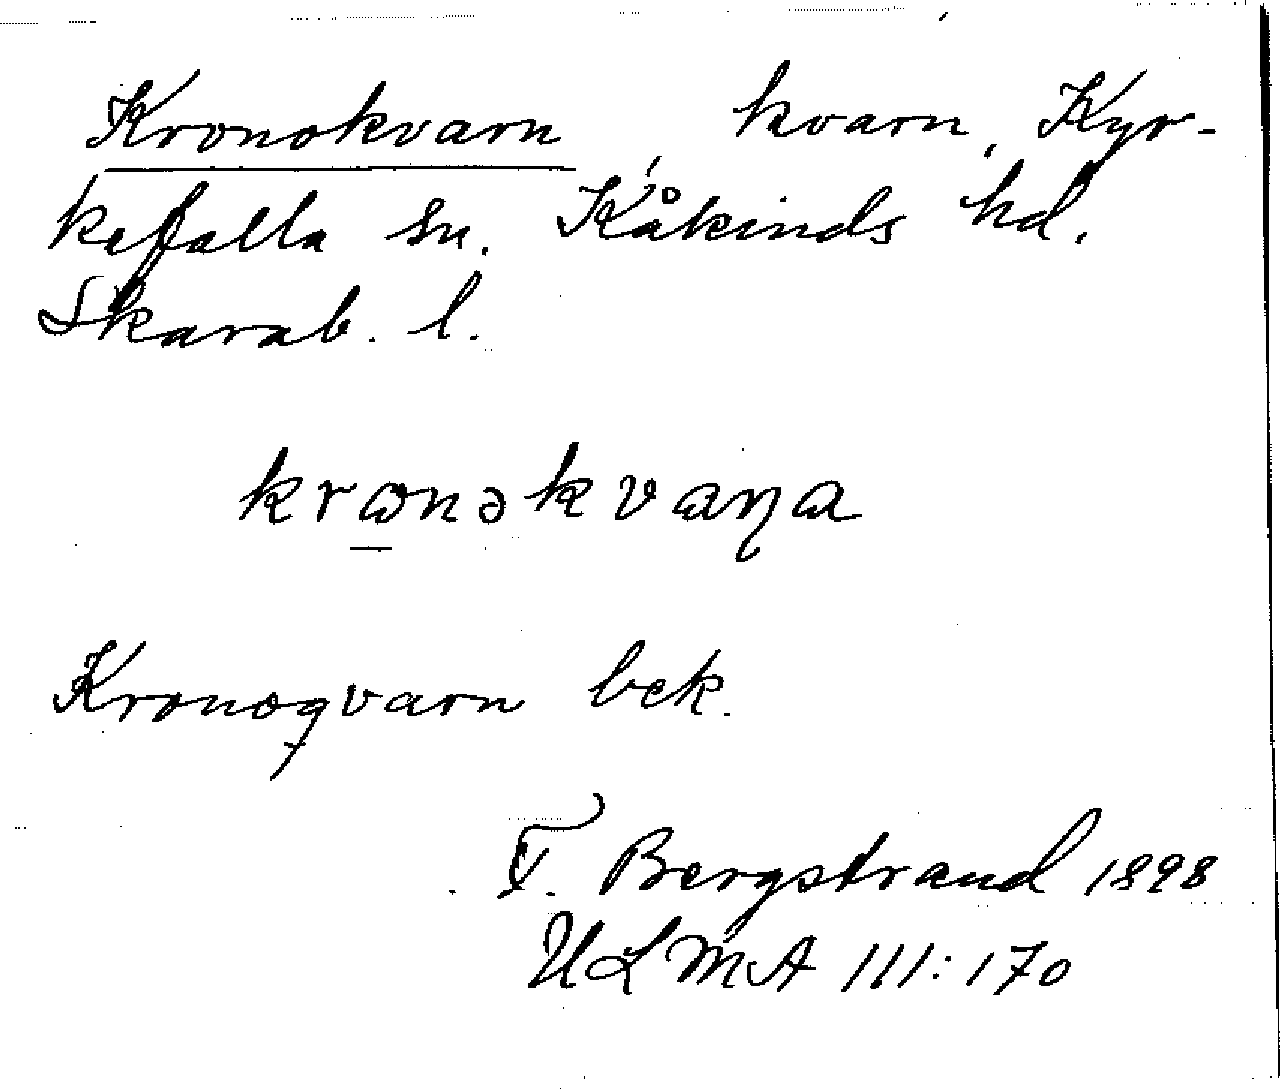 Kronokvarn, kvarn, Kyr-
kefalla sn. Kåkinds hd.
Skarab. l.
krɷnəkvaɳa
Kronoqvarn bek.
F. Bergstrand 1898
ULMA 111:170